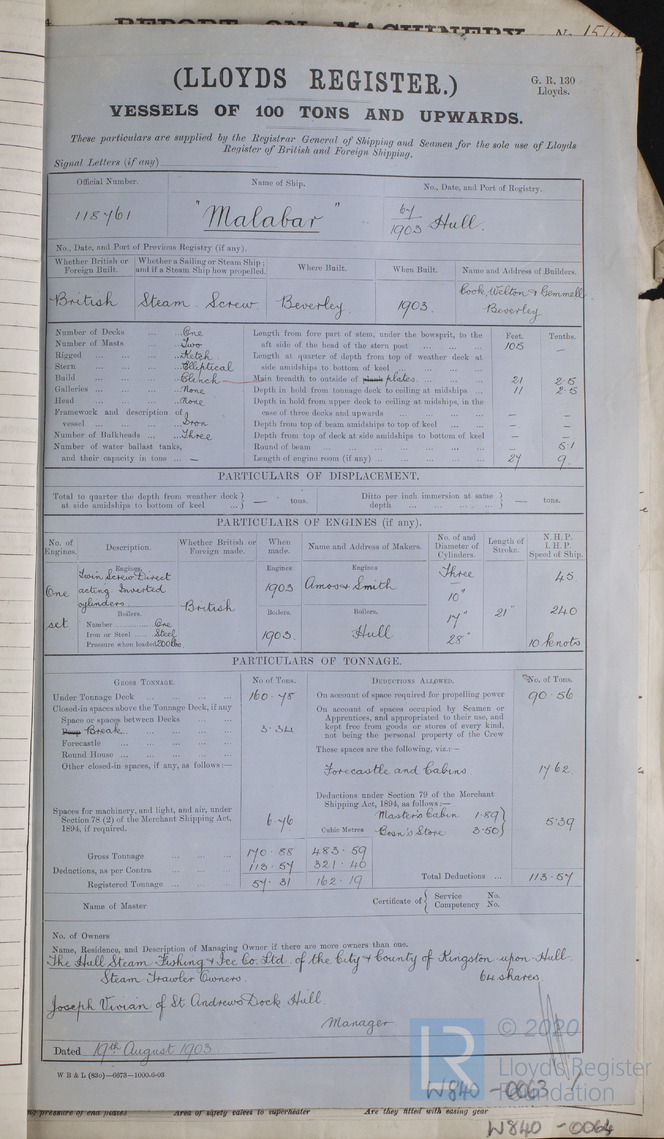 REPORT ON MACHINERY No. 
(LLOYDS REGISTER.)
G. R. 130
Lloyds.
VESSELS OF 100 TONS AND UPWARDS.
These particulars are supplied by the Registrar General of Shipping and Seamen for the sole use of Lloyds
Register of British and Foreign Shipping.
Signal Letters (if any)
Official Number. Name of Ship. No., Date, and Port of Registry.
118761 "Malabar" 67/1903 Hull.
No., Date, and Port of Previous Registry (if any).
Whether British or Foreign Built. Whether a Sailing or Steam Ship; and if a Steam Ship how propelled. Where Built. When Built. Name and Address of Builders.
British Steam Screw Beverley 1903. Cook, Welton & Gemmell Beverley
Number of Decks ... One
Number of Masts ... Two
Rigged ... Ketch
Stern ... Elliptical
Build ... Clinch
Galleries ... None
Head ... None
Framework and description of vessel ... Iron
Number of Bulkheads ... Three
Number of water ballast tanks, and their capacity in tons ... —
Feet. Tenths.
Length from fore part of stem, under the bowsprit, to the aft side of the head of the stern post 105 —
Length at quarter of depth from top of weather deck at side amidships to bottom of keel
Main breadth to outside of plank plates 21 2·5
Depth in hold from tonnage deck to ceiling at midships 11 2·5
Depth in hold from upper deck to ceiling at midships, in the case of three decks and upwards — —
Depth from top of beam amidships to top of keel — —
Depth from top of deck at side amidships to bottom of keel — —
Round of beam 5·1
Length of engine room (if any) 27 9
PARTICULARS OF DISPLACEMENT.
Total to quarter the depth from weather deck at side amidships to bottom of keel — tons.
Ditto per inch immersion at same depth — tons.
PARTICULARS OF ENGINES (if any).
No. of Engines. Description. Whether British or Foreign made. When made. Name and Address of Makers. No. of and Diameter of Cylinders. Length of Stroke. N. H. P. I. H. P. Speed of Ship.
Engines. Engines Engines
One set Twin Screw Direct acting Inverted cylinders British 1903 Amos & Smith Three 10" 17" 28" 21" 45 240 10 knots
Boilers. Boilers. Boilers.
Number One
Iron or Steel Steel
Pressure when loaded 200 lbs
1903. Hull
PARTICULARS OF TONNAGE.
GROSS TONNAGE. No of Tons.
Under Tonnage Deck 160·78
Closed-in spaces above the Tonnage Deck, if any
Space or spaces between Decks
Poop Break 3·34
Forecastle
Round House
Other closed-in spaces, if any, as follows:—
Spaces for machinery, and light, and air, under Section 78 (2) of the Merchant Shipping Act, 1894, if required. 6·76
Gross Tonnage 170·88 483·59
Deductions, as per Contra 113·57 321·40
Registered Tonnage 57·31 162·19
Cubic Metres
DEDUCTIONS ALLOWED. No. of Tons.
On account of space required for propelling power 90·56
On account of spaces occupied by Seamen or Apprentices, and appropriated to their use, and kept free from goods or stores of every kind, not being the personal property of the Crew
These spaces are the following, viz.:—
Forecastle and Cabins 17 62
Deductions under Section 79 of the Merchant Shipping Act, 1894, as follows:—
Master's Cabin 1·89
Bosn's Store 3·50
5·39
Total Deductions ... 113·57
Name of Master
Certificate of Service No.
Competency No.
No. of Owners
Name, Residence, and Description of Managing Owner if there are more owners than one.
The Hull Steam Fishing & Ice Co. Ltd. of the City & County of Kingston upon Hull
Steam Trawler Owners. 64 shares
Joseph Vivian of St. Andrews Dock Hull.
Manager
Dated 19th August 1903.
W B & L (83o)—6673—1000-6-03
© 2020
LR
Lloyd's Register
Foundation
W840-0063
pressure of end plates Area of safety valves to superheater Are they fitted with easing gear
W840-0064